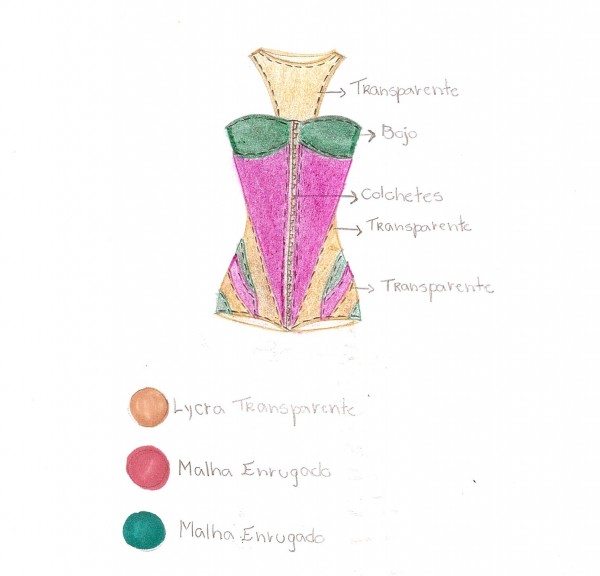 Transparente
Bojo
Colchetes
Transparente
Transparente
Lycra Transparente
Malha Enrugado
Malha Enrugado